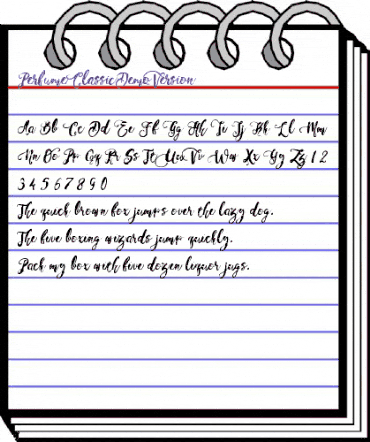 Perfume Classic Demo Version
Aa Bb Cc Dd Ee Ff Gg Hh Ii Jj Kk Ll Mm
Nn Oo Pp Qq Rr Ss Tt Uu Vv Ww Xx Yy Zz 1 2
3 4 5 6 7 8 9 0
The quick brown fox jumps over the lazy dog.
The five boxing wizards jump quickly.
Pack my box with five dozen liquor jugs.